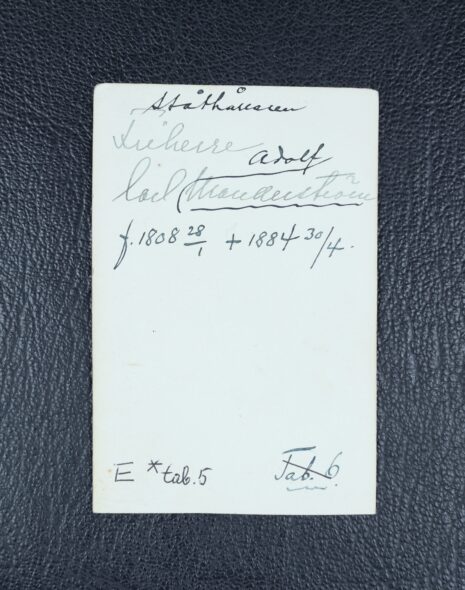 Ståthållaren
Friherre
Adolf
Carl Manderström
f. 1808 28/1 + 1884 30/4.
E *tab. 5 Tab. 6